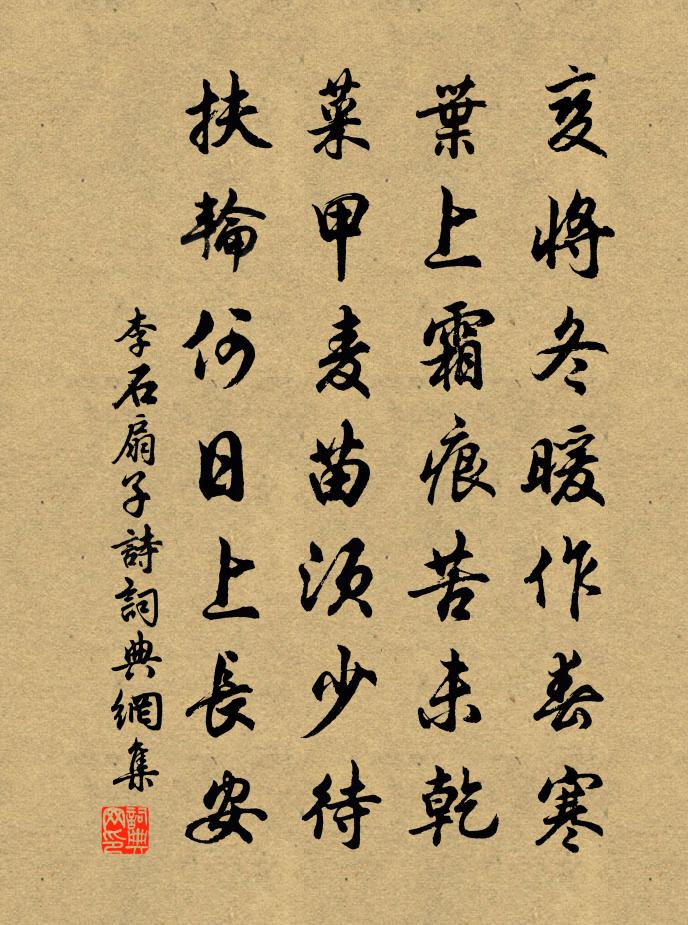 变将冬暖作春寒
葉上霜痕苦未乾
菜甲麦苗须少待
扶輪何日上長安
李石扇子詩詞典網集
詞典网印